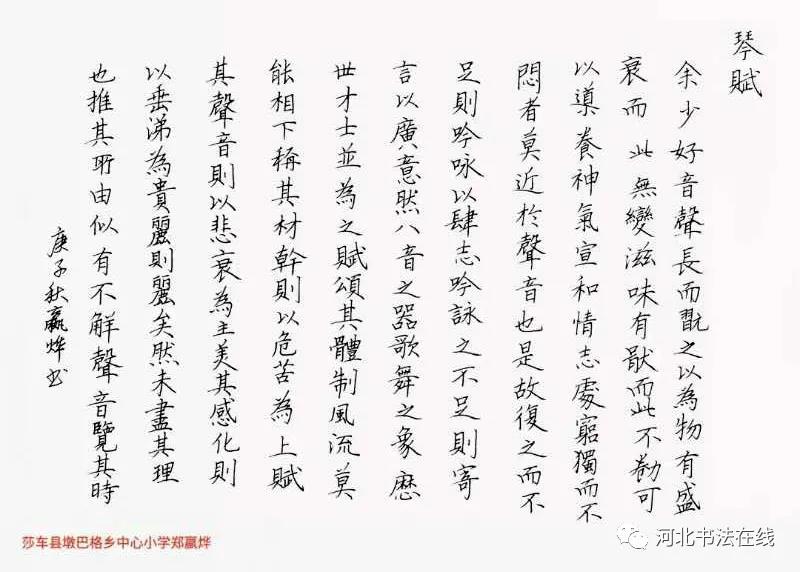 琴賦
余少好音聲長而翫之以為物有盛
衰而此無變滋味有猒而此不勌可
以導養神氣宣和情志處窮獨而不
悶者莫近於聲音也是故復之而不
足則吟咏以肆志吟詠之不足則寄
言以廣意然八音之器歌舞之象歷
世才士並為之賦頌其體制風流莫
能相下稱其材幹則以危苦為上賦
其聲音則以悲哀為主美其感化則
以垂涕為貴麗則麗矣然未盡其理
也推其所由似有不解聲音覽其時
庚子秋贏烨书
莎车县墩巴格乡中心小学郑赢烨
河北书法在线